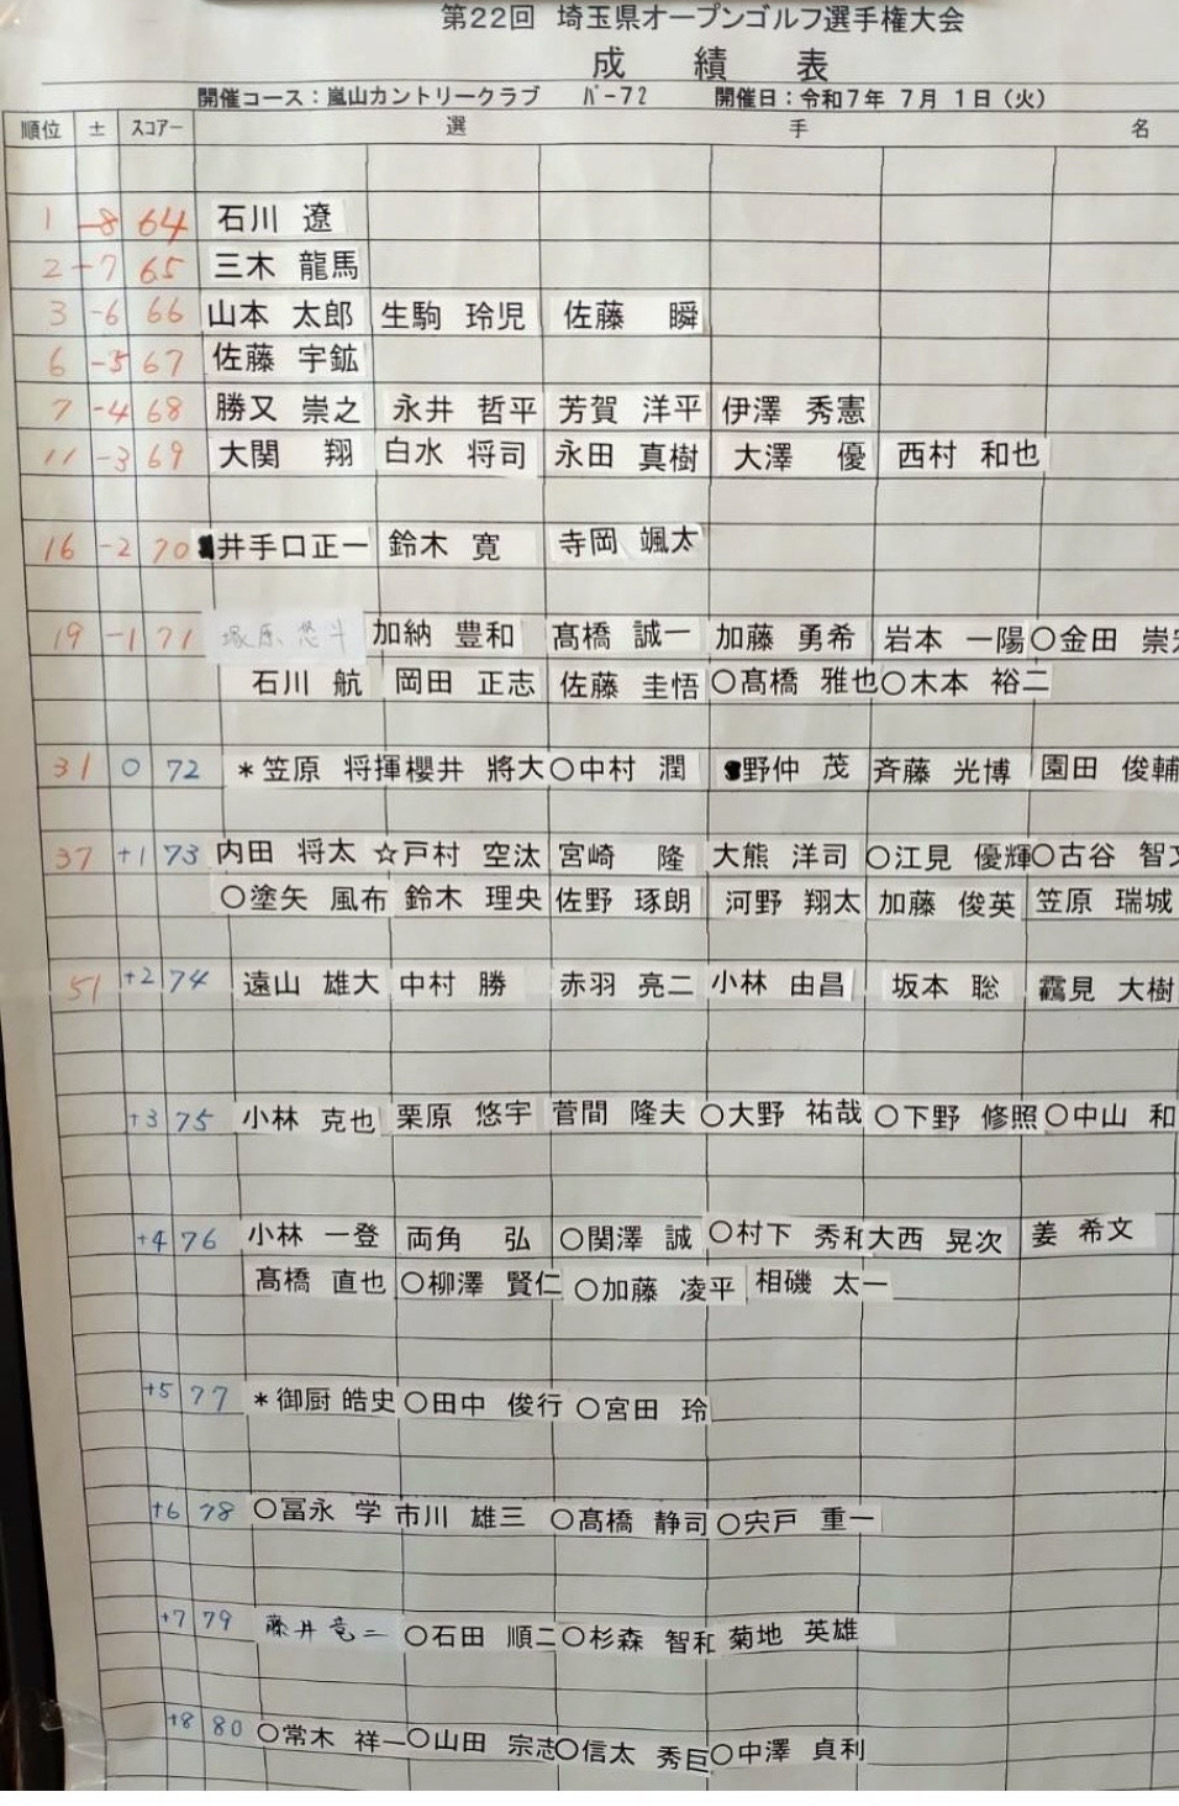 第22回 埼玉県オープンゴルフ選手権大会
成 績 表
開催コース：嵐山カントリークラブ パー72 開催日：令和7年 7月 1日（火）
順位 ± スコアー 選 手 名
1 -8 64 石川 遼
2 -7 65 三木 龍馬
3 -6 66 山本 太郎 生駒 玲児 佐藤 瞬
6 -5 67 佐藤 宇鉱
7 -4 68 勝又 崇之 永井 哲平 芳賀 洋平 伊澤 秀憲
11 -3 69 大関 翔 白水 将司 永田 真樹 大澤 優 西村 和也
16 -2 70 井手口正一 鈴木 寛 寺岡 颯太
19 -1 71 塚原 悠斗 加納 豊和 髙橋 誠一 加藤 勇希 岩本 一陽 ○金田 崇
石川 航 岡田 正志 佐藤 圭悟 ○髙橋 雅也 ○木本 裕二
31 0 72 *笠原 将揮 櫻井 將大 ○中村 潤 野仲 茂 斉藤 光博 園田 俊輔
37 +1 73 内田 将太 ☆戸村 空汰 宮崎 隆 大熊 洋司 ○江見 優輝 ○古谷 智
○塗矢 風布 鈴木 理央 佐野 琢朗 河野 翔太 加藤 俊英 笠原 瑞城
51 +2 74 遠山 雄大 中村 勝 赤羽 亮二 小林 由昌 坂本 聡 靏見 大樹
+3 75 小林 克也 栗原 悠宇 菅間 隆夫 ○大野 祐哉 ○下野 修照 ○中山 和
+4 76 小林 一登 両角 弘 ○関澤 誠 ○村下 秀和 大西 晃次 姜 希文
髙橋 直也 ○柳澤 賢仁 ○加藤 凌平 相磯 太一
+5 77 *御厨 皓史 ○田中 俊行 ○宮田 玲
+6 78 ○冨永 学 市川 雄三 ○髙橋 静司 ○宍戸 重一
+7 79 藤井 竜二 ○石田 順二 ○杉森 智和 菊地 英雄
+8 80 ○常木 祥一 ○山田 宗志 ○信太 秀巨 ○中澤 貞利